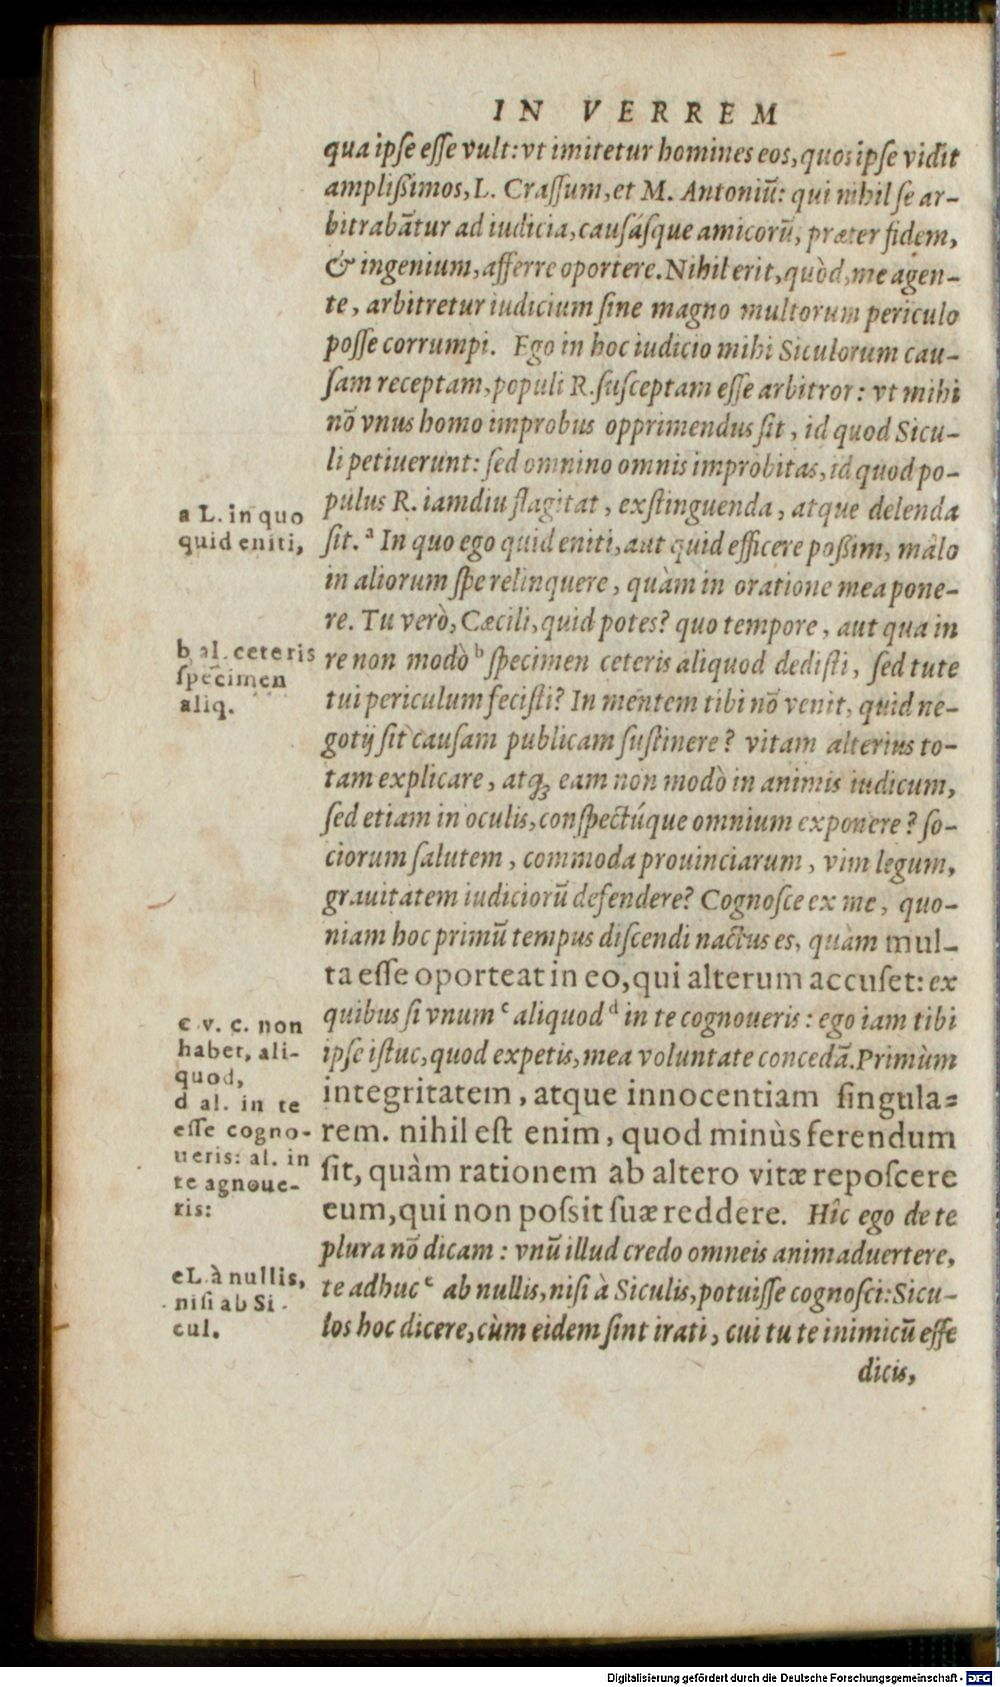 IN VERREM
qua ipse esse vult: vt imitetur homines eos, quos ipse vidit
amplißimos, L. Crassum, et M. Antoniũ: qui nihil se ar-
bitrabãtur ad iudicia, causásque amicorũ, præter fidem,
& ingenium, afferre oportere. Nihil erit, quòd, me agen-
te, arbitretur iudicium sine magno multorum periculo
posse corrumpi. Ego in hoc iudicio mihi Siculorum cau-
sam receptam, populi R. susceptam esse arbitror: vt mihi
nõ vnus homo improbus opprimendus sit, id quod Sicu-
li petiuerunt: sed omnino omnis improbitas, id quod po-
pulus R. iamdiu flagitat, exstinguenda, atque delenda
sit. a In quo ego quid eniti, aut quid efficere poßim, malo
in aliorum spe relinquere, quàm in oratione mea pone-
re. Tu verò, Cæcili, quid potes? quo tempore, aut qua in
re non modò b specimen ceteris aliquod dedisti, sed tute
tui periculum fecisti? In mentem tibi nõ venit, quid ne-
gotij sit causam publicam sustinere? vitam alterius to-
tam explicare, atq; eam non modò in animis iudicum,
sed etiam in oculis, conspectúque omnium exponere? so-
ciorum salutem, commoda prouinciarum, vim legum,
grauitatem iudiciorũ defendere? Cognosce ex me, quo-
niam hoc primũ tempus discendi nactus es, quàm mul-
ta esse oporteat in eo, qui alterum accuset: ex
quibus si vnum c aliquod d in te cognoueris: ego iam tibi
ipse istuc, quod expetis, mea voluntate concedã. Primùm
integritatem, atque innocentiam singula-
rem. nihil est enim, quod minùs ferendum
sit, quàm rationem ab altero vitæ reposcere
eum, qui non possit suæ reddere. Hîc ego de te
plura nõ dicam: vnũ illud credo omneis animaduertere,
te adhuc e ab nullis, nisi à Siculis, potuisse cognosci: Sicu-
los hoc dicere, cùm eidem sint irati, cui tu te inimicũ esse
dicis,
a L. in quo
quid eniti,
b al. ceteris
specimen
aliq.
c v. c. non
habet, ali-
quod,
d al. in te
esse cogno-
ueris: al. in
te agnoue-
ris:
e L. à nullis,
nisi ab Si-
cul.
Digitalisierung gefördert durch die Deutsche Forschungsgemeinschaft - DFG